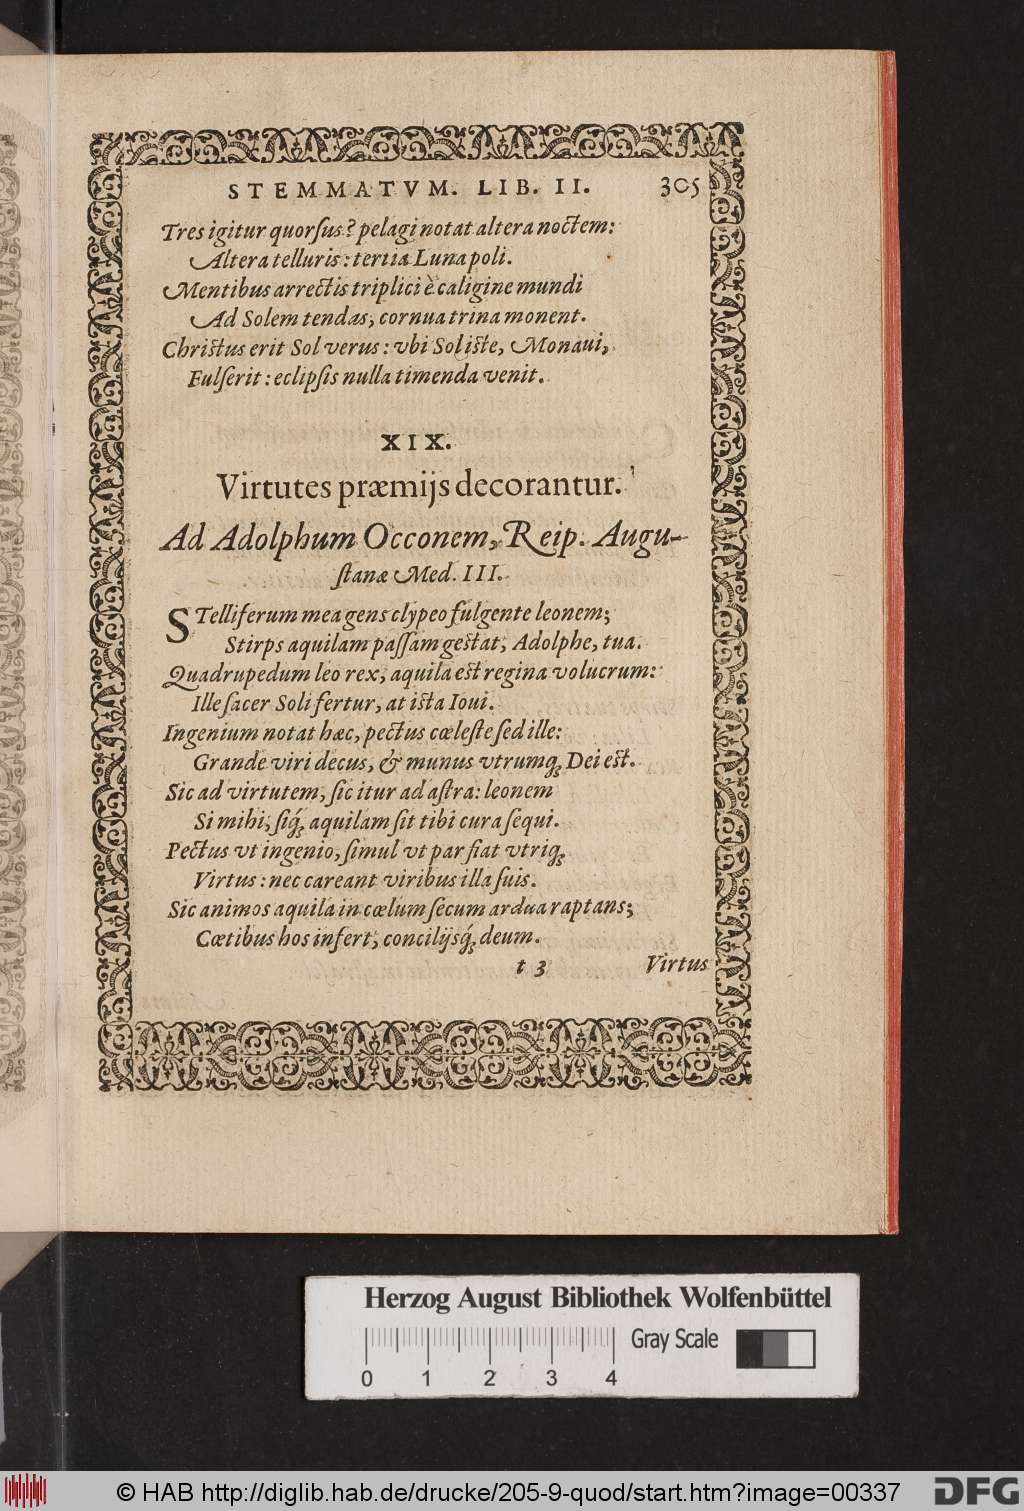 STEMMATVM. LIB. II. 305
Tres igitur quorſus? pelagi notat altera noctem:
Altera telluris: tertia Luna poli.
Mentibus arrectis triplici è caligine mundi
Ad Solem tendas, cornua trina monent.
Chriſtus erit Sol verus: vbi Sol iſte, Monaui,
Fulſerit: eclipſis nulla timenda venit.
XIX.
Virtutes præmijs decorantur.
Ad Adolphum Occonem, Reip. Augu-
ſtanæ Med. III.
STelliferum mea gens clypeo fulgente leonem;
Stirps aquilam paſſam geſtat, Adolphe, tua.
Quadrupedum leo rex, aquila eſt regina volucrum:
Ille ſacer Soli fertur, at iſta Ioui.
Ingenium notat hæc, pectus cœleſte ſed ille:
Grande viri decus, & munus vtrumq; Dei eſt.
Sic ad virtutem, ſic itur ad aſtra: leonem
Si mihi, ſiq́; aquilam ſit tibi cura ſequi.
Pectus vt ingenio, ſimul vt par fiat vtriq;
Virtus: nec careant viribus illa ſuis.
Sic animos aquila in cœlum ſecum ardua raptans;
Cœtibus hos infert, concilijsq́; deum.
t 3 Virtus
Herzog August Bibliothek Wolfenbüttel
Gray Scale
0 1 2 3 4
© HAB http://diglib.hab.de/drucke/205-9-quod/start.htm?image=00337 DFG